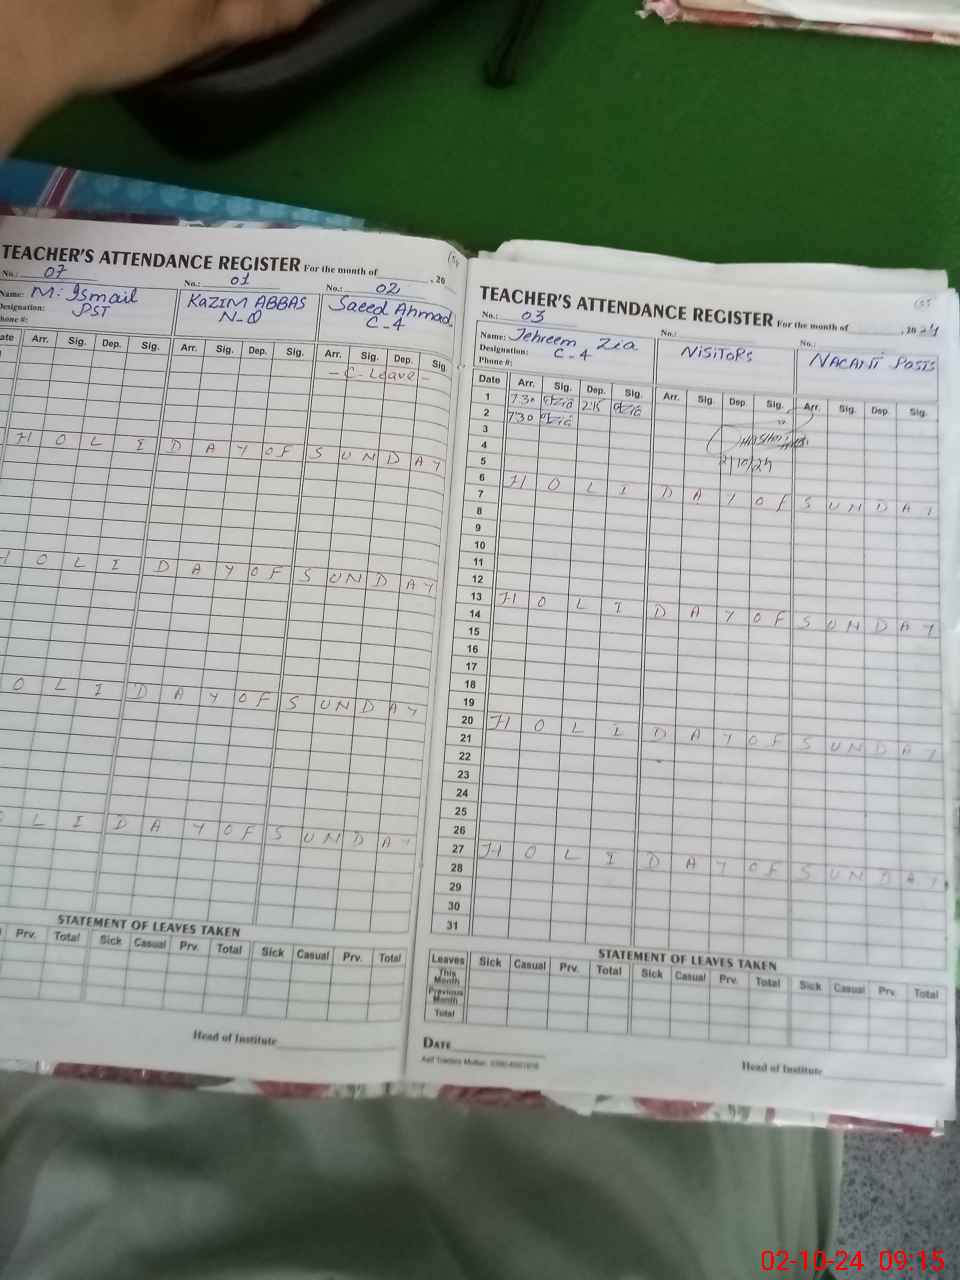 TEACHER'S ATTENDANCE REGISTER For the month of , 20
No.: 07 No.: 01 No.: 02
Name: M. Ismail KAZIM ABBAS Saeed Ahmad
Designation: PST N-Q C-4
Phone #:
Date Arr. Sig. Dep. Sig. Arr. Sig. Dep. Sig. Arr. Sig. Dep. Sig.
- C. Leave -
H O L I D A Y OF S U N D A Y
H O L I D A Y OF S U N D A Y
O L I D A Y OF S U N D A Y
O L I D A Y OF S U N D A Y
STATEMENT OF LEAVES TAKEN
Prv. Total Sick Casual Prv. Total Sick Casual Prv. Total
Head of Institute
TEACHER'S ATTENDANCE REGISTER For the month of , 2024
No.: 03 No.: No.:
Name: Jehreem Zia NISITORS NACANT POSTS
Designation: C-4
Phone #:
Date Arr. Sig. Dep. Sig. Arr. Sig. Dep. Sig. Arr. Sig. Dep. Sig.
1 7:30 Zia 2:15 Zia
2 7:30 Zia
3
4
5 2/10/24
6 H O L I D A Y OF S U N D A Y
7
8
9
10
11
12
13 H O L I D A Y OF S U N D A Y
14
15
16
17
18
19
20 H O L I D A Y OF S U N D A Y
21
22
23
24
25
26
27 H O L I D A Y OF S U N D A Y
28
29
30
31
STATEMENT OF LEAVES TAKEN
Leaves Sick Casual Prv. Total Sick Casual Prv. Total Sick Casual Prv. Total
This Month
Previous Month
Total
DATE
Head of Institute
02-10-24 09:15